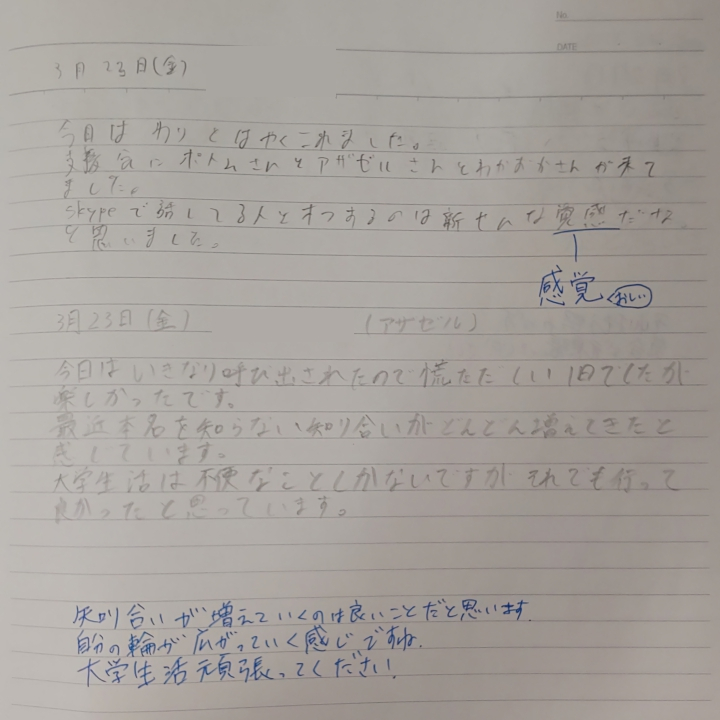 No.
DATE
3月23日(金)
今日は わりとはやくこれました。
支援室にボトムさんとアザゼルさんとわかおかさんが来て
ました。
Skypeで話してる人とオフするのは新せんな覚感だな
と思いました。
感覚 おしい
3月23日(金) (アザゼル)
今日はいきなり呼び出されたので慌ただしい1日でしたが
楽しかったです。
最近本名を知らない知り合いがどんどん増えてきたと
感じています。
大学生活は不便なことしかないですが それでも行って
良かったと思っています。
知り合いが増えていくのは良いことだと思います。
自分の輪が広がっていく感じですね。
大学生活頑張ってください!